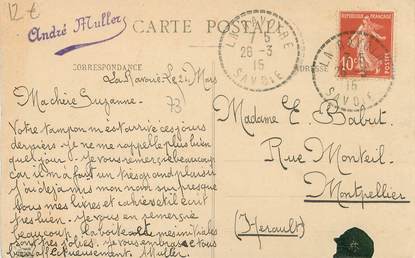 12 €
André Muller
CARTE POSTALE
CORRESPONDANCE
ADRESSE
LA RAVOIRE
5
28-3
15
SAVOIE
LA RA
15
SAVOIE
RÉPUBLIQUE FRANÇAISE
10c
POSTES
La Ravoire, le 24 Mars
73
Ma chère Suzanne.
Votre tampon m'est arrivé ces jours
derniers je ne me rappelle plus bien
quel jour. Je vous remercie beaucoup
car il m'a fait un très grand plaisir
J'ai déjà mis mon nom sur presque
tous mes livres et cahiers et il écrit
très bien. Je vous en remercie
beaucoup, la boîte et mes initiales
sont très jolies. Je vous embrasse tous
bien affectueusement, Muller.
Madame E. Babut
Rue Monteil
Montpellier
(Hérault)